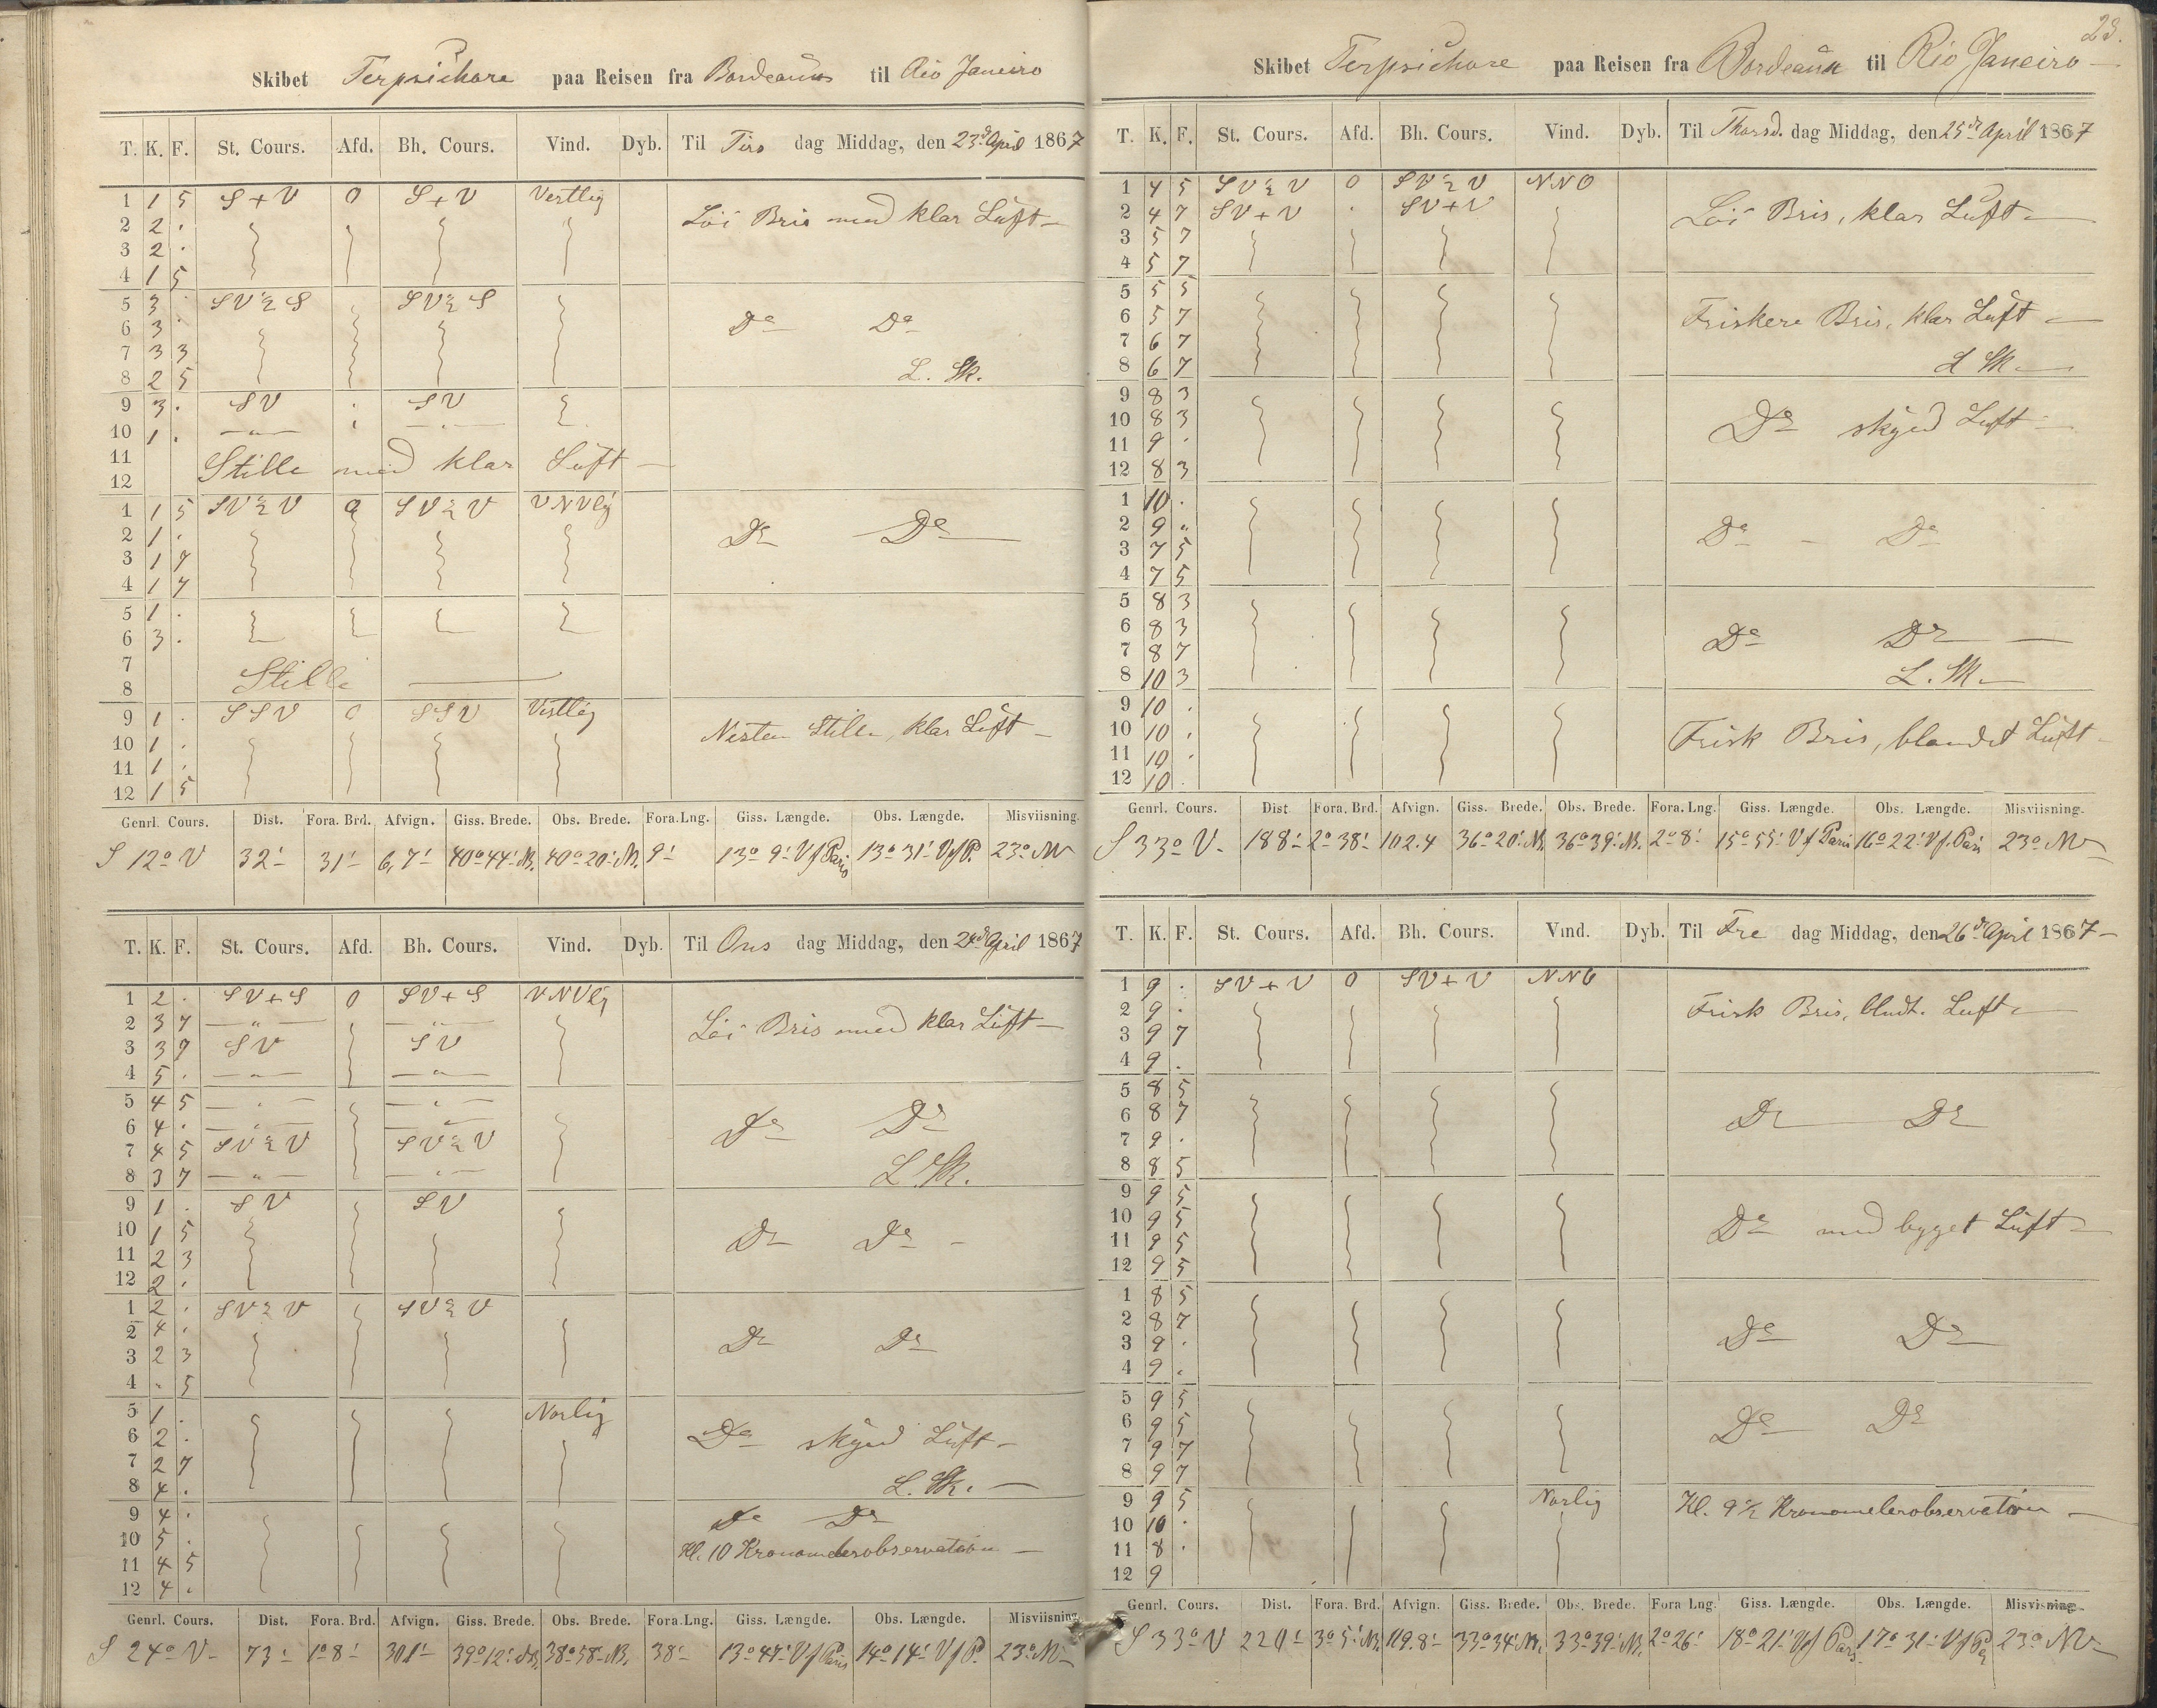 Skibet Terpsichore paa Reisen fra Bordeaux til Rio Janeiro
T. K. F. St. Cours. Afd. Bh. Cours. Vind. Dyb. Til Tirs dag Middag, den 23d April 1867
1 1 5 S + V 0 S + V Vestlig
2 2 . Löi Bris med klar Luft —
3 2 .
4 1 5
5 3 . SV ½ S SV ½ S
6 3 . Do Do
7 3 3
8 2 5 L. Sk.
9 3 . SV SV
10 1 . — " — — " —
11 Stille med klar Luft —
12
1 1 5 SV ½ V 0 SV ½ V VNVlig
2 1 . Do Do
3 1 7
4 1 7
5 1 .
6 3 .
7 Stille
8
9 1 . SSV 0 SSV Vestlig
10 1 . Nesten Stille, klar Luft —
11 1 .
12 1 5
Genrl. Cours. Dist. Fora. Brd. Afvign. Giss. Brede. Obs. Brede. Fora. Lng. Giss. Længde. Obs. Længde. Misviisning.
S 12° V 32' 31' 6,7' 40° 44' N. 40° 20' N. 9' 13° 9' V f Paris 13° 31' V f P. 23° NV
T. K. F. St. Cours. Afd. Bh. Cours. Vind. Dyb. Til Ons dag Middag, den 24d April 1867
1 2 . SV + S 0 SV + S VNVlig
2 3 7 — " — — " — Löi Bris med klar Luft —
3 3 7 SV SV
4 5 . — " — — " —
5 4 5 — " — — " —
6 4 . — " — — " — Do Do
7 4 5 SV ½ V SV ½ V
8 3 7 — " — — " — L. Sk.
9 1 . SV SV
10 1 5 Do Do —
11 2 3
12 2 .
1 2 . SV ½ V SV ½ V
2 4 . Do Do
3 2 3
4 . 5
5 1 . Norlig
6 2 . Do skyed Luft —
7 2 7
8 4 . L. Sk. —
9 4 . Do Do
10 5 . Kl. 10 Kronometerobservation —
11 4 5
12 4 .
Genrl. Cours. Dist. Fora. Brd. Afvign. Giss. Brede. Obs. Brede. Fora. Lng. Giss. Længde. Obs. Længde. Misviisning
S 24° V 73' 1° 8' 301' 39° 12' N. 38° 58' N. 38' 13° 47' V f Paris 14° 14' V f P. 23° NV
23.
Skibet Terpsichore paa Reisen fra Bordeaux til Rio Janeiro —
T. K. F. St. Cours. Afd. Bh. Cours. Vind. Dyb. Til Thorsd. dag Middag, den 25d April 1867
1 4 5 SV ½ V 0 SV ½ V NNO
2 4 7 SV + V . SV + V Löi Bris, klar Luft —
3 5 7
4 5 7
5 5 5
6 5 7 Friskere Bris, klar Luft —
7 6 7
8 6 7 L Sk —
9 8 3
10 8 3 Do skyed Luft —
11 9 .
12 8 3
1 10 .
2 9 " Do — Do
3 7 5
4 7 5
5 8 3
6 8 3 Do Do —
7 8 7
8 10 3 L. Sk —
9 10 .
10 10 . Frisk Bris, blandet Luft —
11 10 .
12 10 .
Genrl. Cours. Dist Fora. Brd. Afvign. Giss. Brede. Obs. Brede. Fora. Lng. Giss. Længde. Obs. Længde. Misviisning.
S 33° V. 188' 2° 38' 102.4 36° 20' N. 36° 39' N. 2° 8' 15° 55' V f Paris 16° 22' V f. Paris 23° NV
T. K. F. St. Cours. Afd. Bh. Cours. Vind. Dyb. Til Fre dag Middag, den 26d April 1867 —
1 9 . SV + V 0 SV + V NNO
2 9 . Frisk Bris, blndt. Luft —
3 9 7
4 9 .
5 8 5
6 8 7 Do Do
7 9 .
8 8 5
9 9 5
10 9 5 Do med bygget Luft —
11 9 5
12 9 5
1 8 5
2 8 7 Do Do
3 9 .
4 9 .
5 9 5
6 9 5 Do Do
7 9 7
8 9 7
9 9 5 Norlig Kl. 9 ½ Kronometerobservation —
10 10 .
11 8 .
12 9
Genrl. Cours. Dist. Fora. Brd. Afvign. Giss. Brede. Obs. Brede. Fora Lng. Giss. Længde. Obs. Længde. Misvisning
S 33° V 220' 3° 5' N. 119.8' 33° 34' N. 33° 39' N. 2° 26' 18° 21' V f Paris 17° 31' V f P. 23° NV